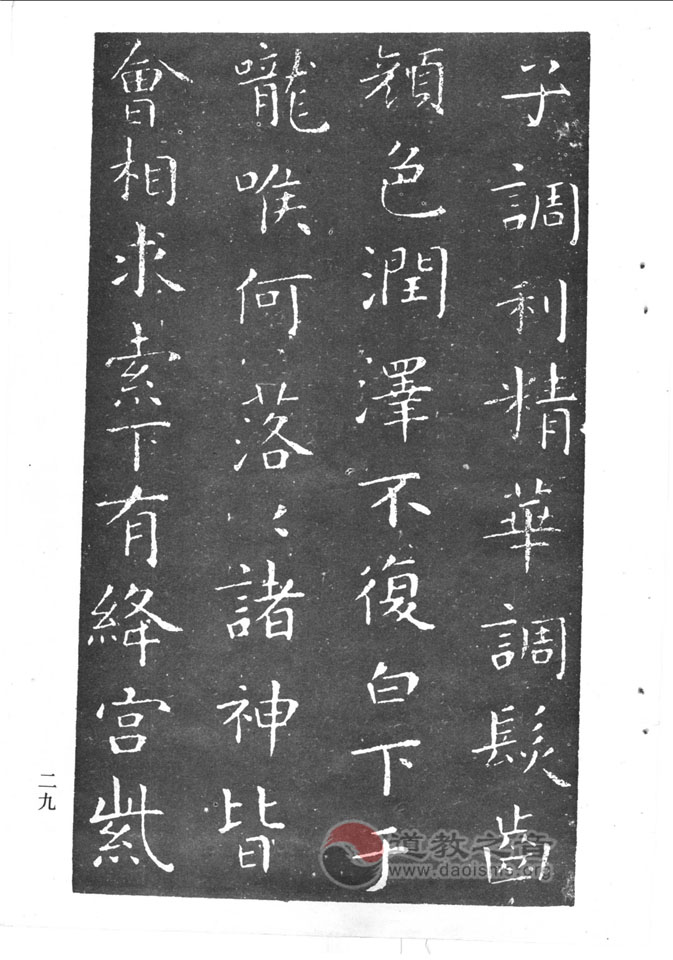 子調利精華調髮齒
顏色潤澤不復白下于
嚨喉何落〻諸神皆
會相求索下有絳宮紫
二九
道教之音
www.daoisms.org